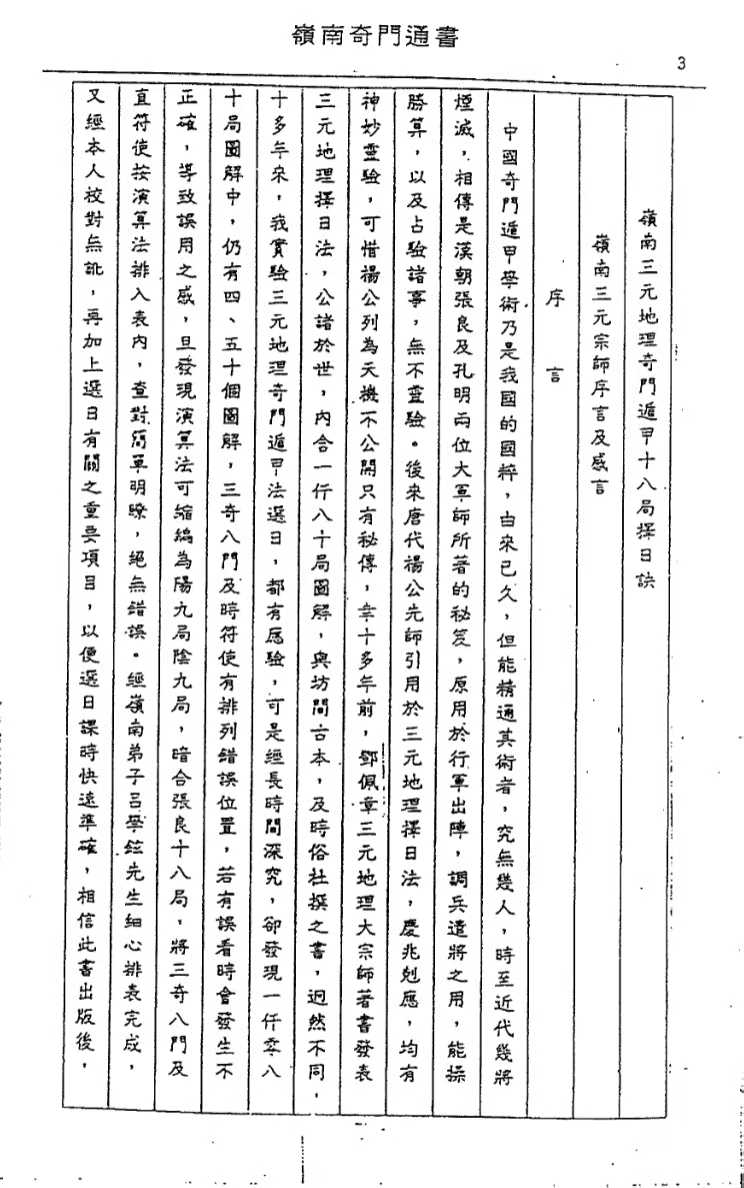 嶺南奇門通書
3
嶺南三元地理奇門遁甲十八局擇日訣
嶺南三元宗師序言及感言
序言
中國奇門遁甲學術乃是我國的國粹，由來已久，但能精通其術者，究無幾人，時至近代幾將
煙滅，相傳是漢朝張良及孔明兩位大軍師所著的秘笈，原用於行軍出陣，調兵遣將之用，能操
勝算，以及占驗諸事，無不靈驗。後來唐代楊公先師引用於三元地理擇日法，慶兆剋應，均有
神妙靈驗，可惜楊公列為天機不公開只有秘傳，幸十多年前，鄧佩章三元地理大宗師著書發表
三元地理擇日法，公諸於世，內含一仟八十局圖解，與坊間古本，及時俗杜撰之書，迥然不同，
十多年來，我實驗三元地理奇門遁甲法選日，都有應驗，可是經長時間深究，卻發現一仟零八
十局圖解中，仍有四、五十個圖解，三奇八門及時符使有排列錯誤位置，若有誤看時會發生不
正確，導致誤用之感，旦發現演算法可縮編為陽九局陰九局，暗合張良十八局，將三奇八門及
直符使按演算法排入表內，查對簡單明瞭，絕無錯誤。經嶺南弟子呂學鉉先生細心排表完成，
又經本人校對無訛，再加上選日有關之重要項目，以便選日課時快速準確，相信此書出版後，